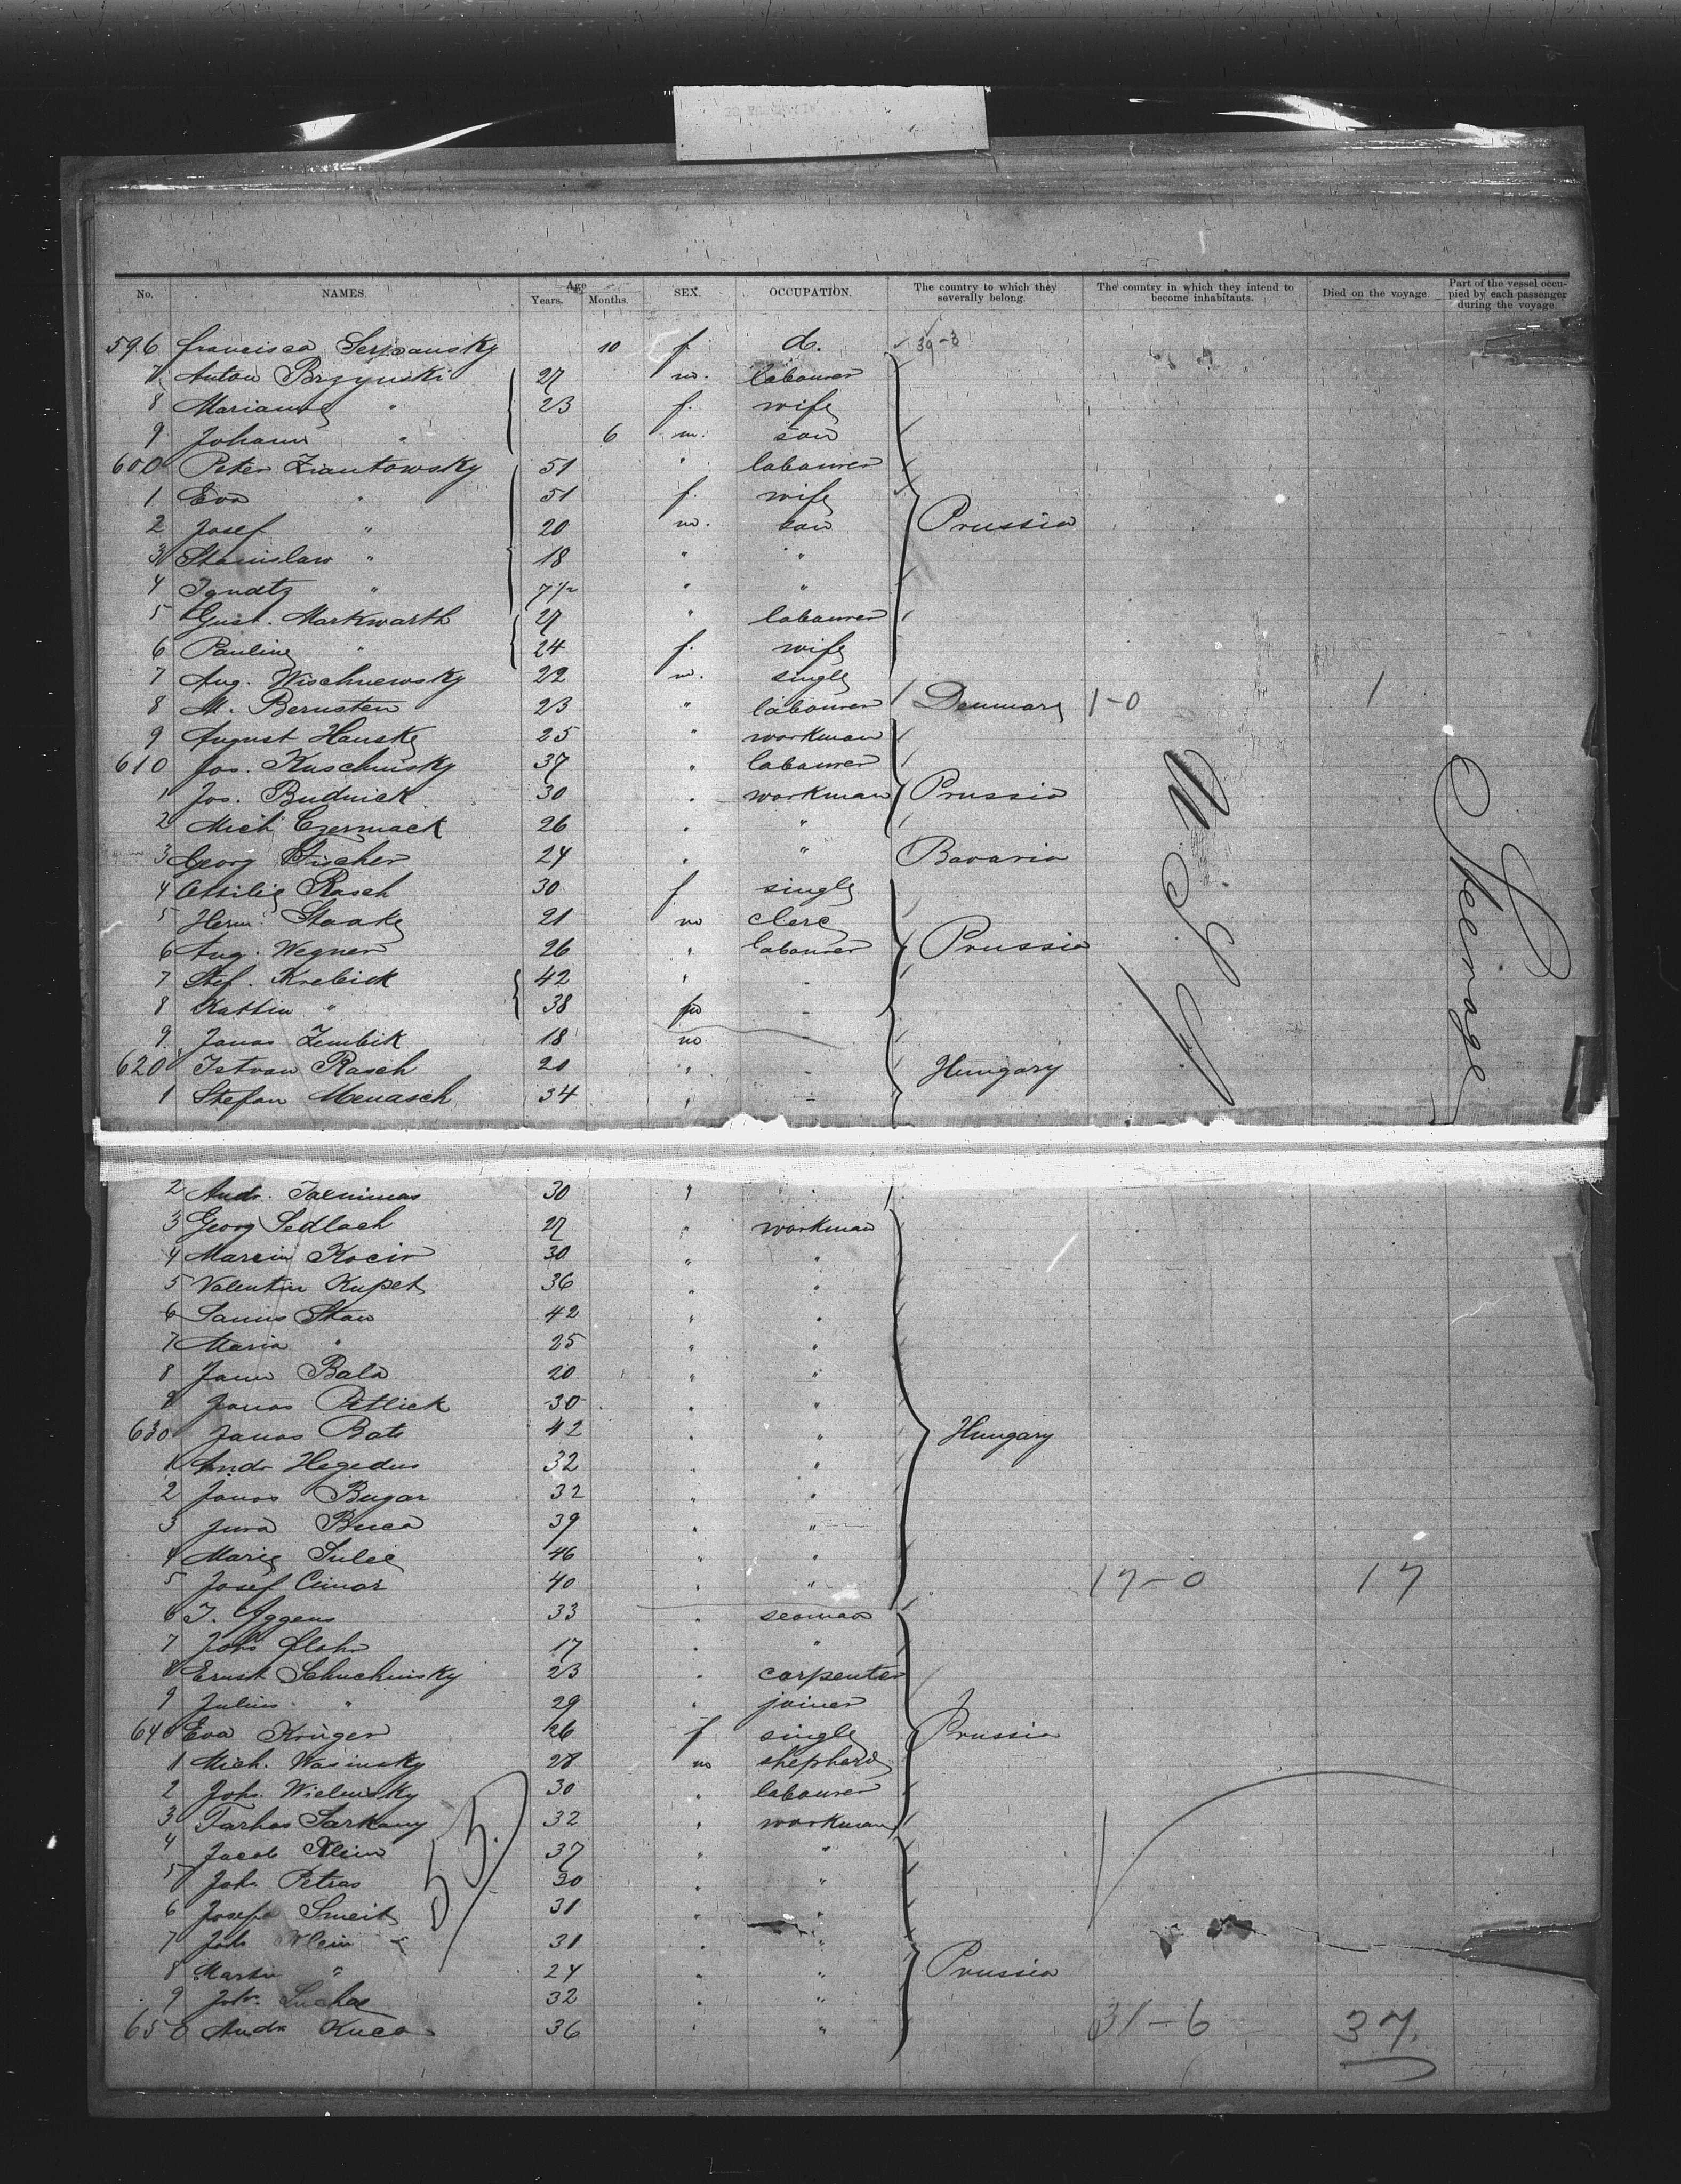 No. NAMES Age Years. Months. SEX. OCCUPATION. The country to which they severally belong. The country in which they intend to become inhabitants. Died on the voyage Part of the vessel occupied by each passenger during the voyage.
596 Francisca 10 f d. 39-3
7 Anton Brzynski 27 m. labourer
8 Marianne " 23 f. wife
9 Johann " 6 m. son
600 Peter Ziantowsky 51 " labourer
1 Eva " 51 f. wife
2 Josef " 20 m. son Prussia
3 Stanislaw " 18 " "
4 Ignatz " 7½ " "
5 Gust. Markwarth 27 " labourer
6 Pauline " 24 f. wife
7 Aug. Wischnewsky 22 m. single
8 M. Bernsten 23 " labourer Denmark 1-0 1
9 August Hanske 25 " workman
610 Jos. Kuschinsky 37 " labourer
1 Jos. Budnick 30 " workman Prussia
2 Mich Czermack 26 " "
3 Georg Fischer 24 " " Bavaria
4 Ottilie Rasch 30 f single
5 Herm. Staake 21 m clerc
6 Aug. Wegner 26 " labourer Prussia
7 Stef. Krebick 42 " -
8 Kattin " 38 -
9 Janos Zembik 18 m -
620 Istvan Rasch 20 " - Hungary
1 Stefan Menasch 34 " -
U S of A
Steerage
2 Andr. 30 "
3 Georg Sedlach 27 " workman
4 Marcin Kocir 30 " "
5 Valentin Kupet 36 " "
6 42 " "
7 Maria " 25 " "
8 Bala 20 " "
9 Janos Petlick 30 " "
630 Janos Bats 42 " " Hungary
1 Andr Hegedus 32 " "
2 Janos Bugar 32 " "
3 Jura Buca 39 " "
4 Marie 46 " "
5 Josef Cimar 40 " " 17-0 17
6 J. Aggens 33 " seaman
7 Johs 17 " "
8 Ernst Schuchinsky 23 " carpenter
9 Julius " 29 " joiner
640 Eva Krüger 26 f single Prussia
1 Mich. Wasinsky 28 m shepherd
2 Joh. Wielinsky 30 " labourer
3 Sarkany 32 " workman
4 Jacob Klein 37 " "
5 Joh. Petras 30 " "
6 31 " "
7 Joh Klein 31 " "
8 Martin " 24 " " Prussia
9 Joh. 32 " "
650 Andr Kuca 36 " " 31-6 37.
55